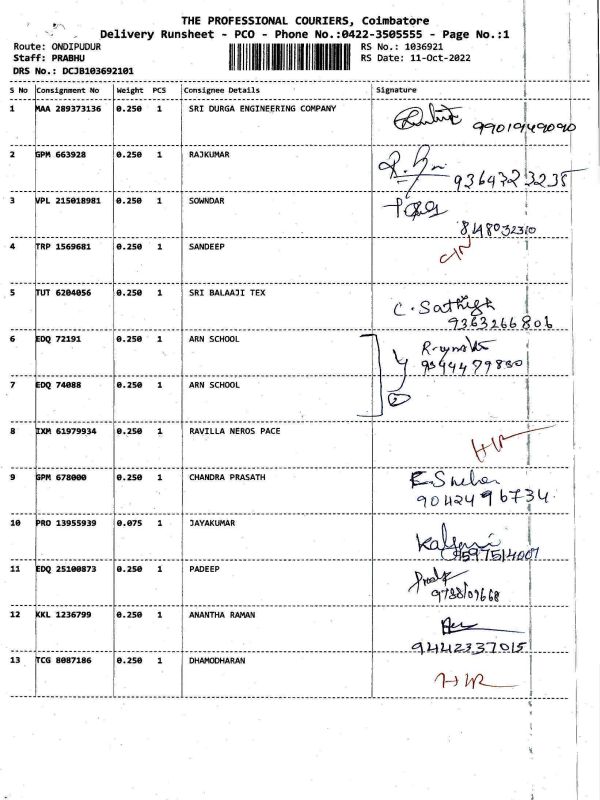 THE PROFESSIONAL COURIERS, Coimbatore
Delivery Runsheet - PCO - Phone No.:0422-3505555 - Page No.:1
Route: ONDIPUDUR RS No.: 1036921
Staff: PRABHU RS Date: 11-Oct-2022
DRS No.: DCJB103692101
S No Consignment No Weight PCS Consignee Details Signature
1 MAA 289373136 0.250 1 SRI DURGA ENGINEERING COMPANY
9901949090
2 GPM 663928 0.250 1 RAJKUMAR
9364723235
3 VPL 215018981 0.250 1 SOWNDAR
8148032310
4 TRP 1569681 0.250 1 SANDEEP
5 TUT 6204056 0.250 1 SRI BALAAJI TEX
C. Sathish
9363266806
6 EDQ 72191 0.250 1 ARN SCHOOL
7 EDQ 74088 0.250 1 ARN SCHOOL
2
8 IXM 61979934 0.250 1 RAVILLA NEROS PACE
9 GPM 678000 0.250 1 CHANDRA PRASATH
9042496734
10 PRO 13955939 0.075 1 JAYAKUMAR
11 EDQ 25100873 0.250 1 PADEEP
12 KKL 1236799 0.250 1 ANANTHA RAMAN
9442337015
13 TCG 8087186 0.250 1 DHAMODHARAN